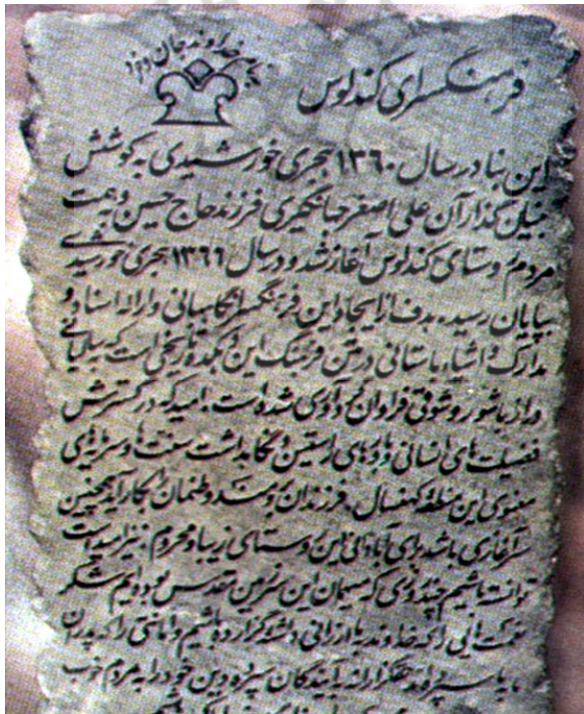 بنام خداوند جان و خرد
فرهنگسرای کندلوس
این بنا در سال ۱۳۶۰ هجری خورشیدی به کوشش
بنیان گذار آن علی اصغر جهانگیری فرزند حاج حسین و همت
مردم روستای کندلوس آغاز شد و در سال ۱۳۶۶ هجری خورشیدی
بپایان رسید، هدف از ایجاد این فرهنگسرا نگاهبانی و ارائه اسناد و
مدارک و اشیاء باستانی در متن فرهنگ این دهکده تاریخی است که سالیانی
دراز با شور و شوقی فراوان گردآوری شده است. امید که در گسترش
فضیلت های انسانی و راستین و نگاهداشت سنت ها و
معنوی این منطقه کهنسال، فرزندان برومند وطنمان را بکار آید همچنین
سرآغازی باشد برای آبادانی این روستای زیبا و محروم. نیز امید است
توانسته باشیم چند روزی که میهمان این سرزمین مقدس بوده ایم شکر
نعمت هایی را که خداوند بما ارزانی داشته گزارده باشیم و امانتی را که پدران
ما بما سپرده اند به آیندگان سپرده دین خود را به مردم خوب